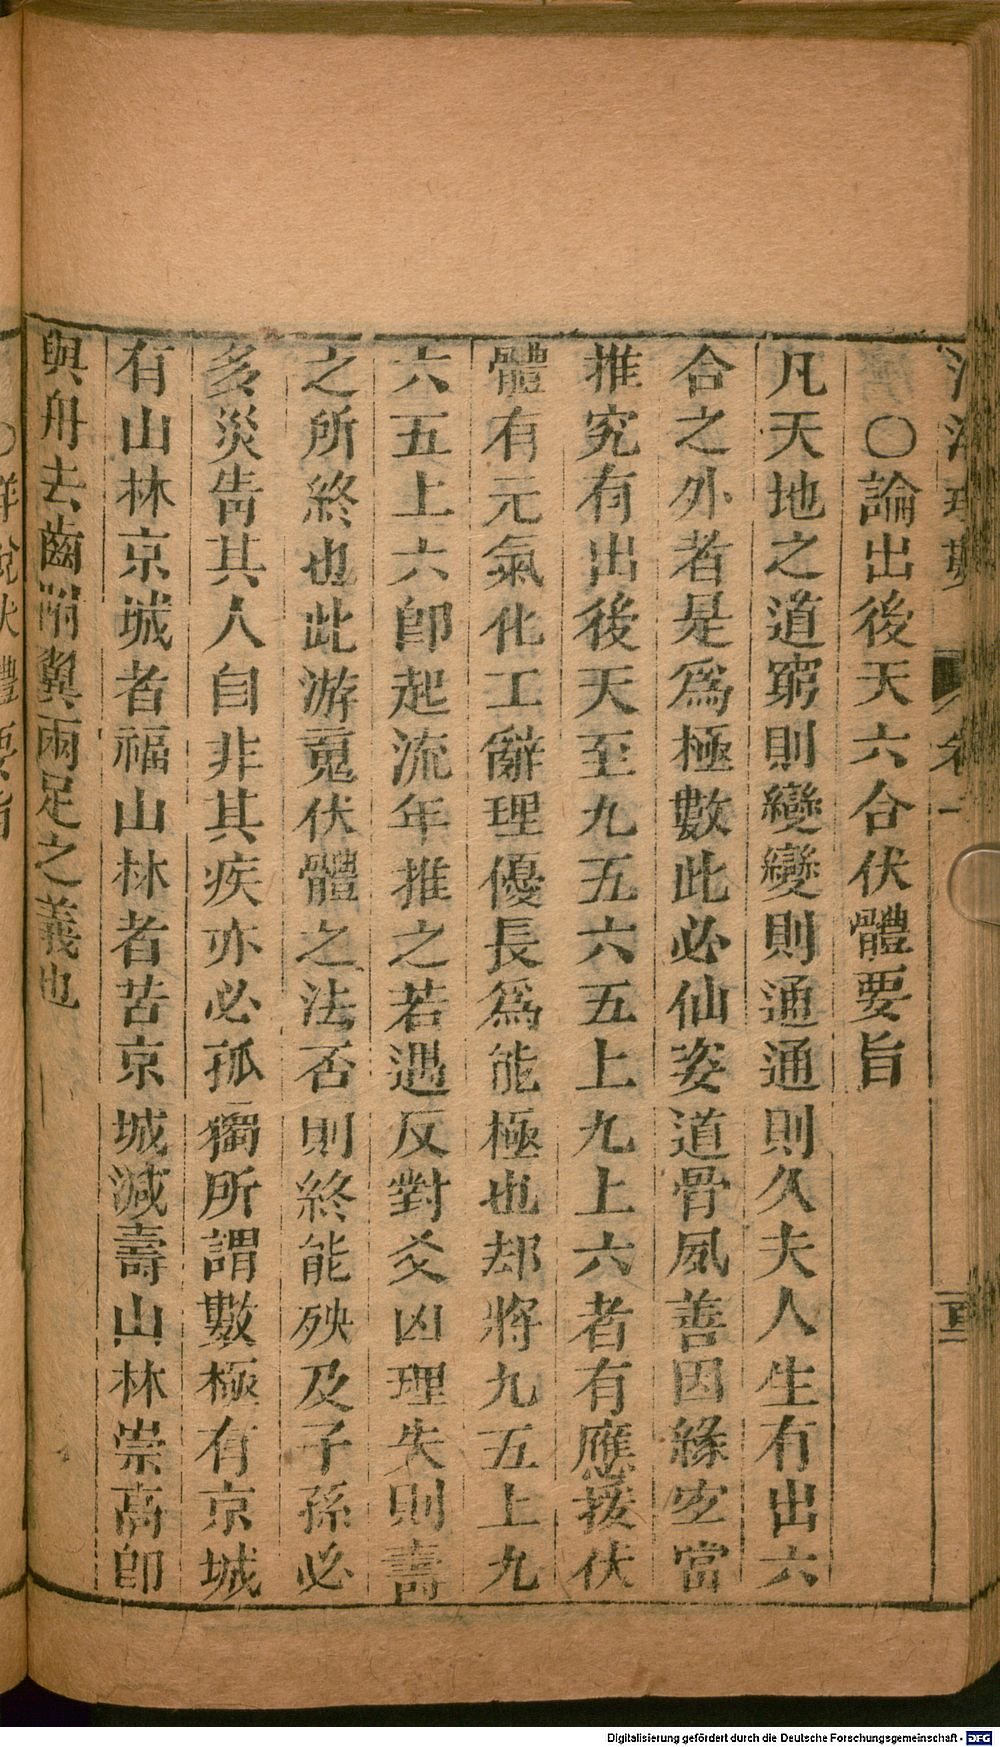 ○論出後天六合伏體要旨
凡天地之道窮則變變則通通則久夫人生有出六
合之外者是爲極數此必仙姿道骨夙善因緣宜當
推究有出後天至九五六五上九上六者有應援伏
體有元氣化工辭理優長爲能極也却將九五上九
六五上六卽起流年推之若遇反對爻凶理失則壽
之所終也此游䰟伏體之法否則終能殃及子孫必
多災眚其人自非其疾亦必孤獨所謂數極有京城
有山林京城者福山林者苦京城減壽山林崇高卽
與角去齒附翼兩足之義也
Digitalisierung gefördert durch die Deutsche Forschungsgemeinschaft - DFG